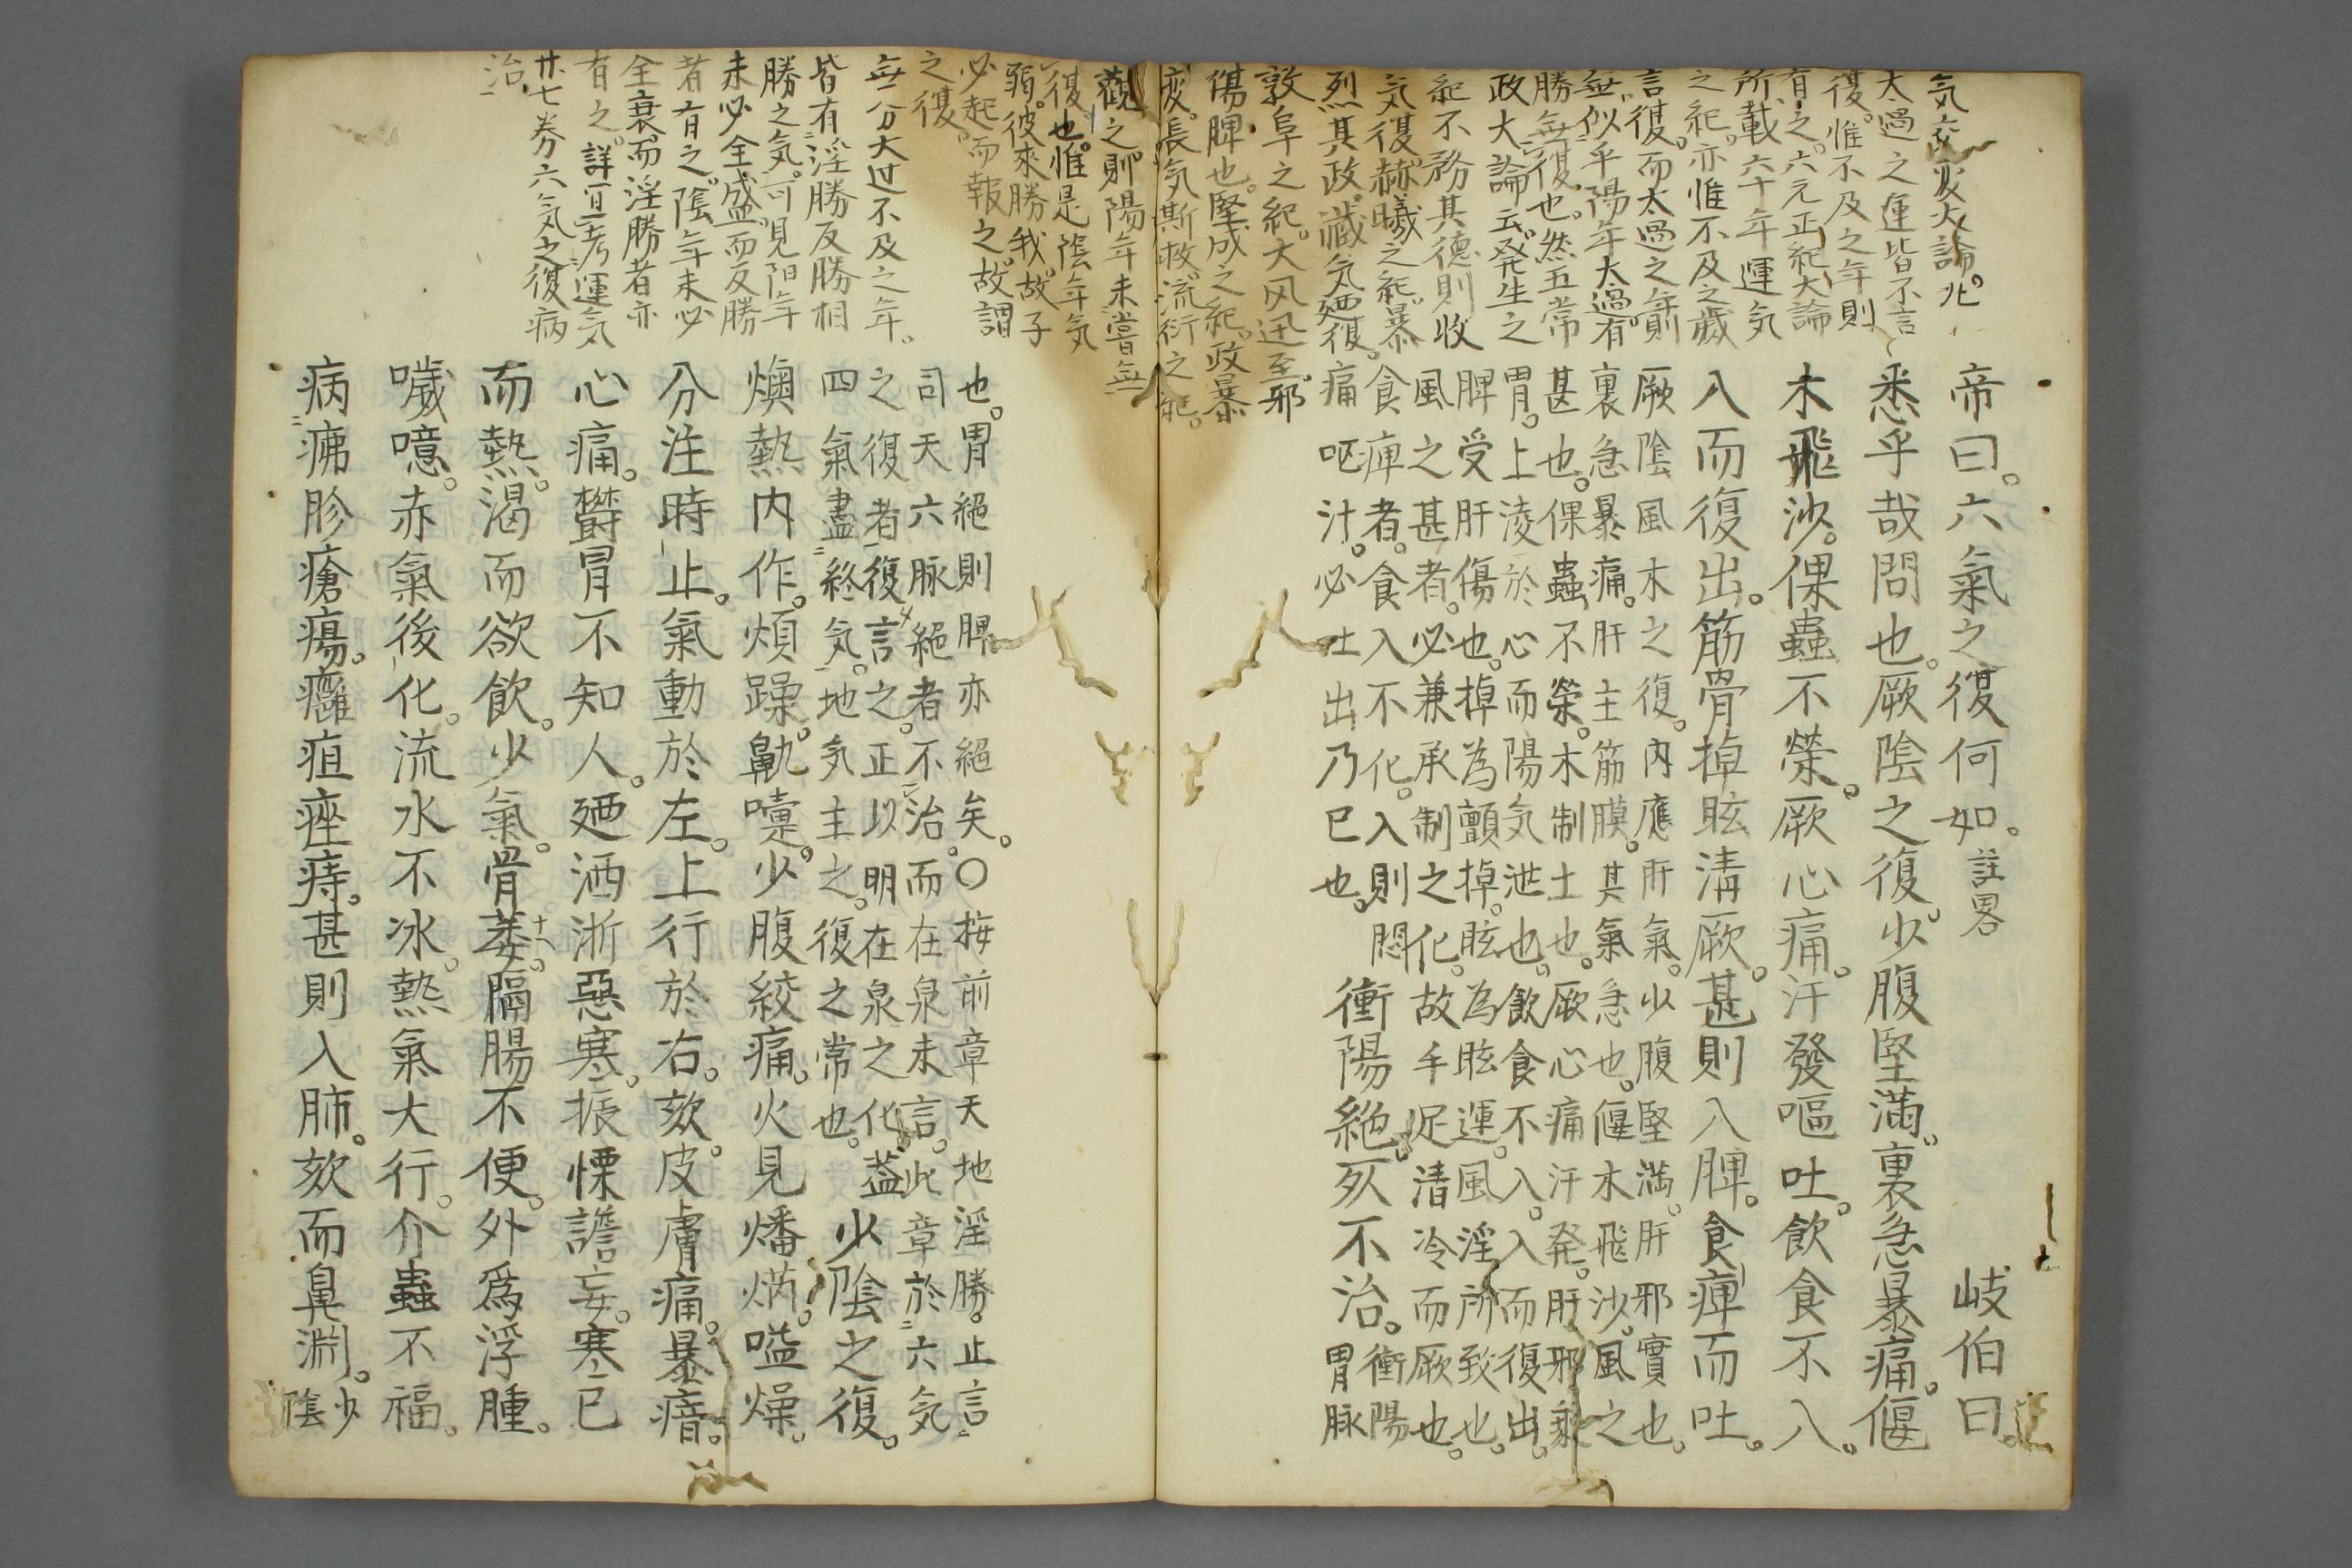 気交変大論。凡
太過之運皆不言
復。惟不及之年則
有之。六元正紀大論
所載六十年運気
之紀。亦惟不及之歳
言復。而太過之年則
無似乎陽年太過有
勝無復也。然五常
政大論云。発生之
紀不務其德則收
気復。赫曦之紀。暴
烈其政。藏気廼復。
敦阜之紀。大风迅至。邪
傷脾也。堅成之紀。政暴
変。長気斯救。流衍之紀。
帝曰。六氣之復何如。註畧 岐伯曰。
悉乎哉問也。厥陰之復。少腹堅滿。裏急暴痛。偃
木飛沙。倮蟲不榮。厥心痛。汗發嘔吐。飲食不入。
入而復出。筋骨掉眩清厥。甚則入脾。食痺而吐。
厥陰風木之復。内應肝氣。少腹堅満。肝邪實也。
裏急暴痛。肝主筋膜。其氣急也。偃木飛沙。風之
甚也。倮蟲不榮。木制土也。厥心痛汗発。肝邪乘
胃。上淩於心而陽気泄也。飲食不入。入而復出。
脾受肝傷也。掉為顫掉。眩為眩運。風淫所致也。
風之甚者。必兼承制之化。故手足清冷而厥也。
食痺者。食入不化。入則悶
痛呕汁。必吐出乃已也。
衝陽絶。死不治。衝陽
胃脉
觀之。則陽年未嘗無
復也。惟是陰年気
弱。彼來勝我。故子
必起而報之。故謂
之復。
無分太过不及之年。
皆有淫勝反勝相
勝之気。可見陽年
未必全盛。而反勝
者有之。陰年未必
全衰。而淫勝者亦
有之。詳宜考運気
廿七券六気之復病
治。
也。胃絕則脾亦絕矣。○按前章天地淫勝。止言
司天六脉絕者不治。而在泉未言。此章於六気
之復者復言之。正以明在泉之化。蓋
四氣盡終気。地気主之。復之常也。
少陰之復。
燠熱内作。煩躁。鼽嚏。少腹絞痛。火見燔焫。嗌燥。
分注時止。氣動於左。上行於右。欬。皮膚痛。暴瘖。
心痛。欝冒不知人。廼洒淅惡寒。振慄譫妄。寒已
而熱。渴而欲飲。少氣。骨萎。隔腸不便。外爲浮腫。
噦噫。赤氣後化。流水不冰。熱氣大行。介蟲不福。
病疿胗瘡瘍。癰疽痤痔。甚則入肺。欬而鼻淵。少
陰